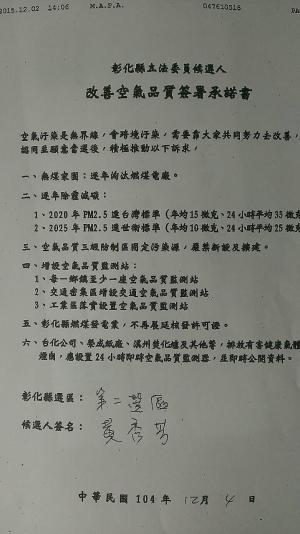 2015.12.02 14:06 M.A.P.A. 047610516 PA
彰化縣立法委員候選人
改善空氣品質簽署承諾書
空氣汙染是無界線,會跨境汙染,需要靠大家共同努力去改善,
認同並願意當選後,積極推動以下訴求,
一、無煤家園:逐年淘汰燃煤電廠。
二、逐年除霾減碳:
1、2020 年 PM2.5 達台灣標準(年均 15 微克、24 小時平均 35 微克
2、2025 年 PM2.5 達世衛標準(年均 10 微克、24 小時平均 25 微克
三、空氣品質三級防制區固定污染源,嚴禁新設及擴建。
四、增設空氣品質監測站:
1、每一鄉鎮至少一座空氣品質監測站
2、交通密集區增設交通空氣品質監測站
3、工業區落實設置空氣品質監測站
五、彰化縣燃煤發電業,不再展延核發許可證。
六、台化公司、榮成紙廠、溪州焚化爐及其他等,排放有害健康氣體
煙囪,應設置 24 小時即時空氣品質監測器,並即時公開資料。
彰化縣選區: 第二選區
候選人簽名: 黃秀芳
中華民國 104 年 12 月 4 日